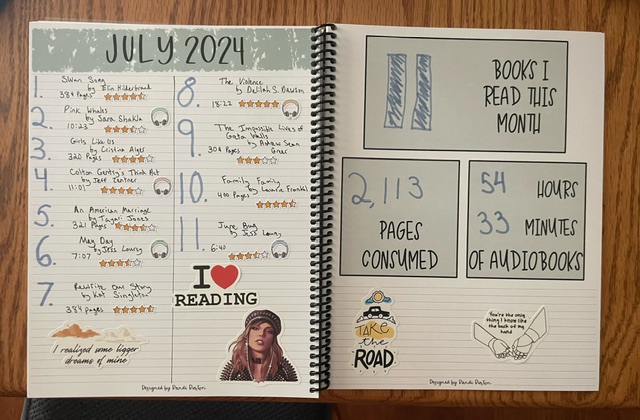 JULY 2024
1.
Swan Song
by Elin Hilderbrand
384 Pages
2.
Pink Whales
by Sara Shukla
10:23
3.
Girls Like Us
by Cristina Alger
320 Pages
4.
Colton Gentry's Third Act
by Jeff Zentner
11:01
5.
An American Marriage
by Tayari Jones
321 Pages
6.
May Day
by Jess Lourey
7:07
7.
Rewrite Our Story
by Kat Singleton
384 pages
I realized some bigger
dreams of mine
8.
The Violence
by Delilah S. Dawson
18:22
9.
The Impossible Lives of
Greta Wells
by Andrew Sean
Greer
304 Pages
10.
Family Family
by Laurie Frankel
400 Pages
11.
June Bug
by Jess Lourey
6:40
I
READING
11
BOOKS I
READ THIS
MONTH
2,113
PAGES
CONSUMED
54 HOURS
33 MINUTES
OF AUDIOBOOKS
TAKE
the
ROAD
You're the only
thing I know like
the back of my
hand
Designed by
Designed by